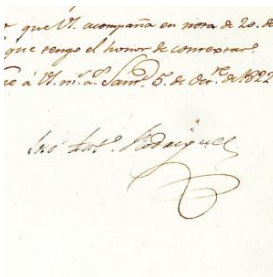 que V. acompaña en nota de 20. de
que tengo el honor de contextar.
á V. m.s a.s Sant.o 5. de Oct.re de 1822
José Ant.o Rodriguez